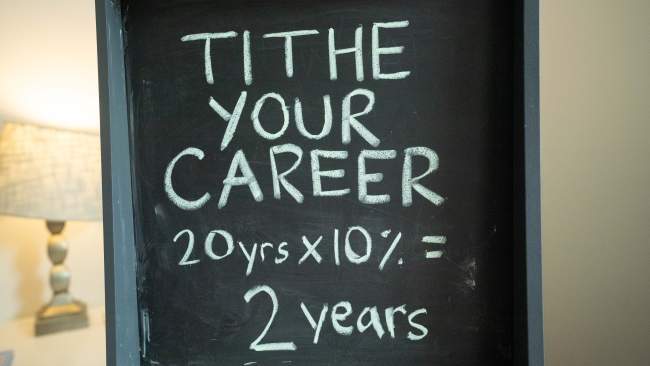 TITHE
YOUR
CAREER
20yrs x 10% =
2 years